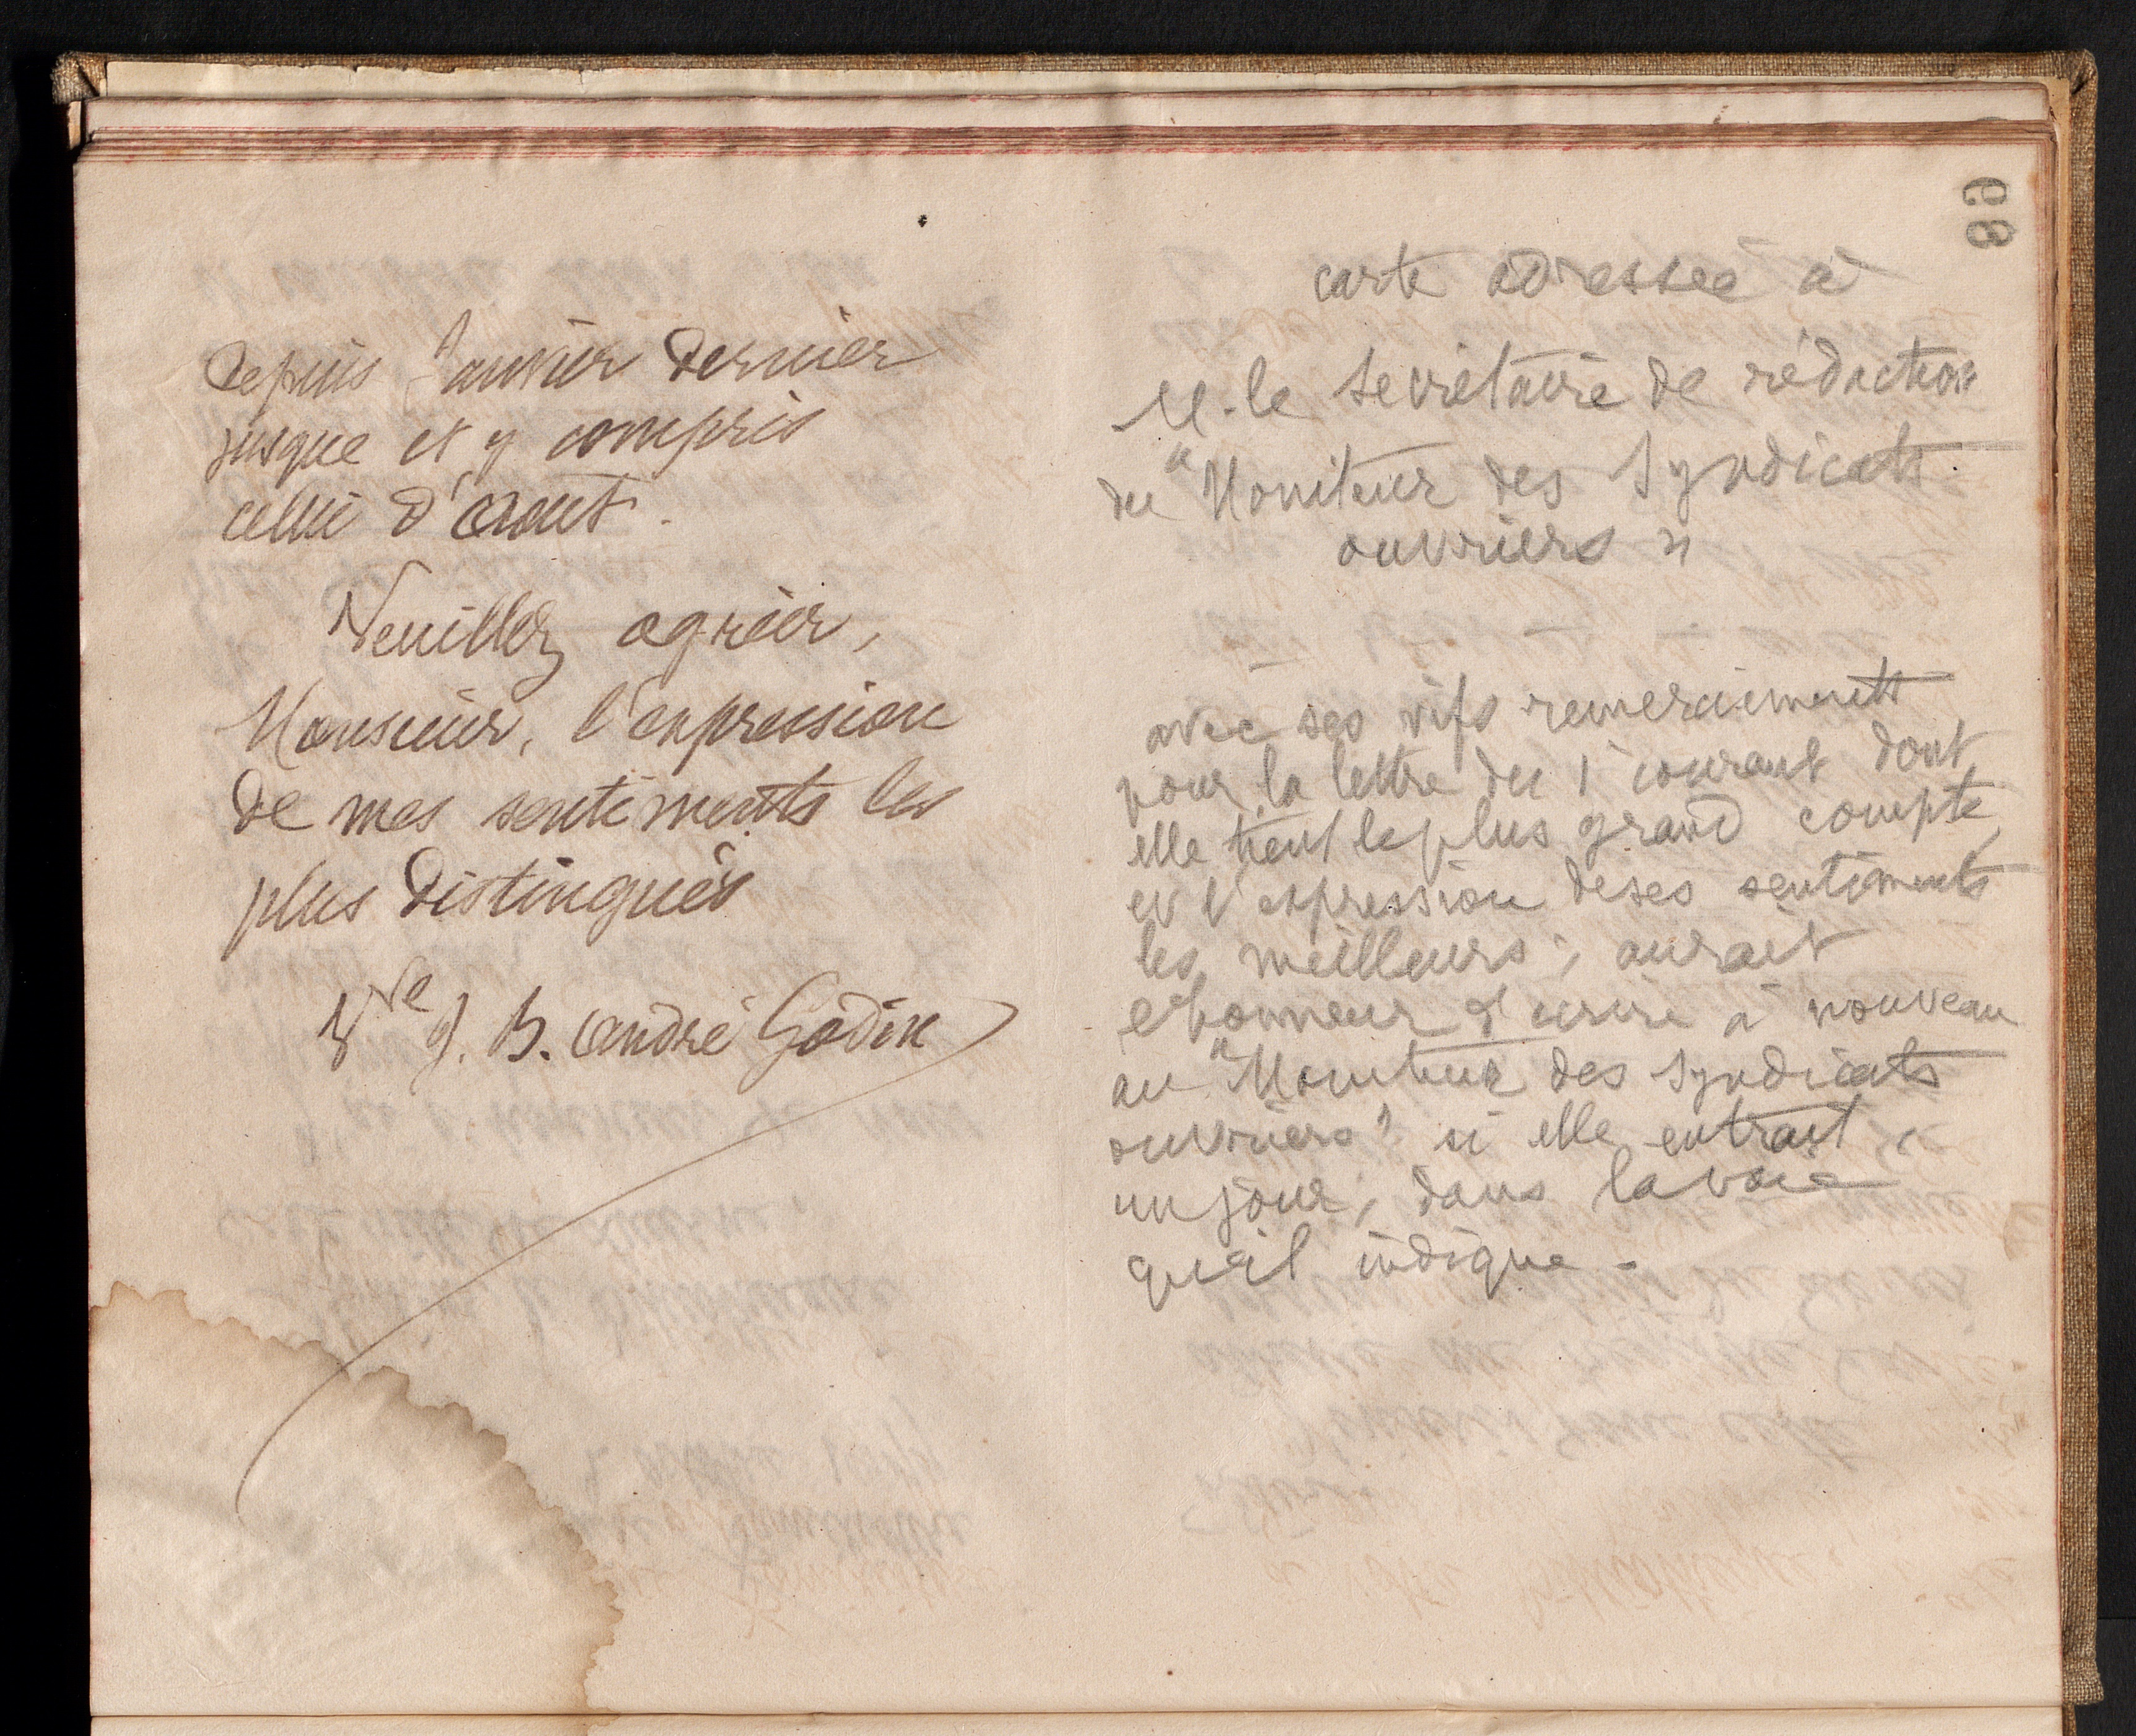 depuis Janvier dernier
jusque et y compris
celui d'Août.
Veuillez agréer,
Monsieur, l'expression
de mes sentiments les
plus distingués
Vve J. B. André Godin
68
carte adressée à
M. le Secrétaire de rédaction
du "Moniteur des Syndicats
ouvriers"
avec ses vifs remerciements
pour la lettre du 1 courant dont
elle tient le plus grand compte,
et l'expression de ses sentiments
les meilleurs; aurait
l'honneur d'écrire à nouveau
au "Moniteur des Syndicats
ouvriers" si elle entrait,
un jour, dans la voie
qu'il indique.